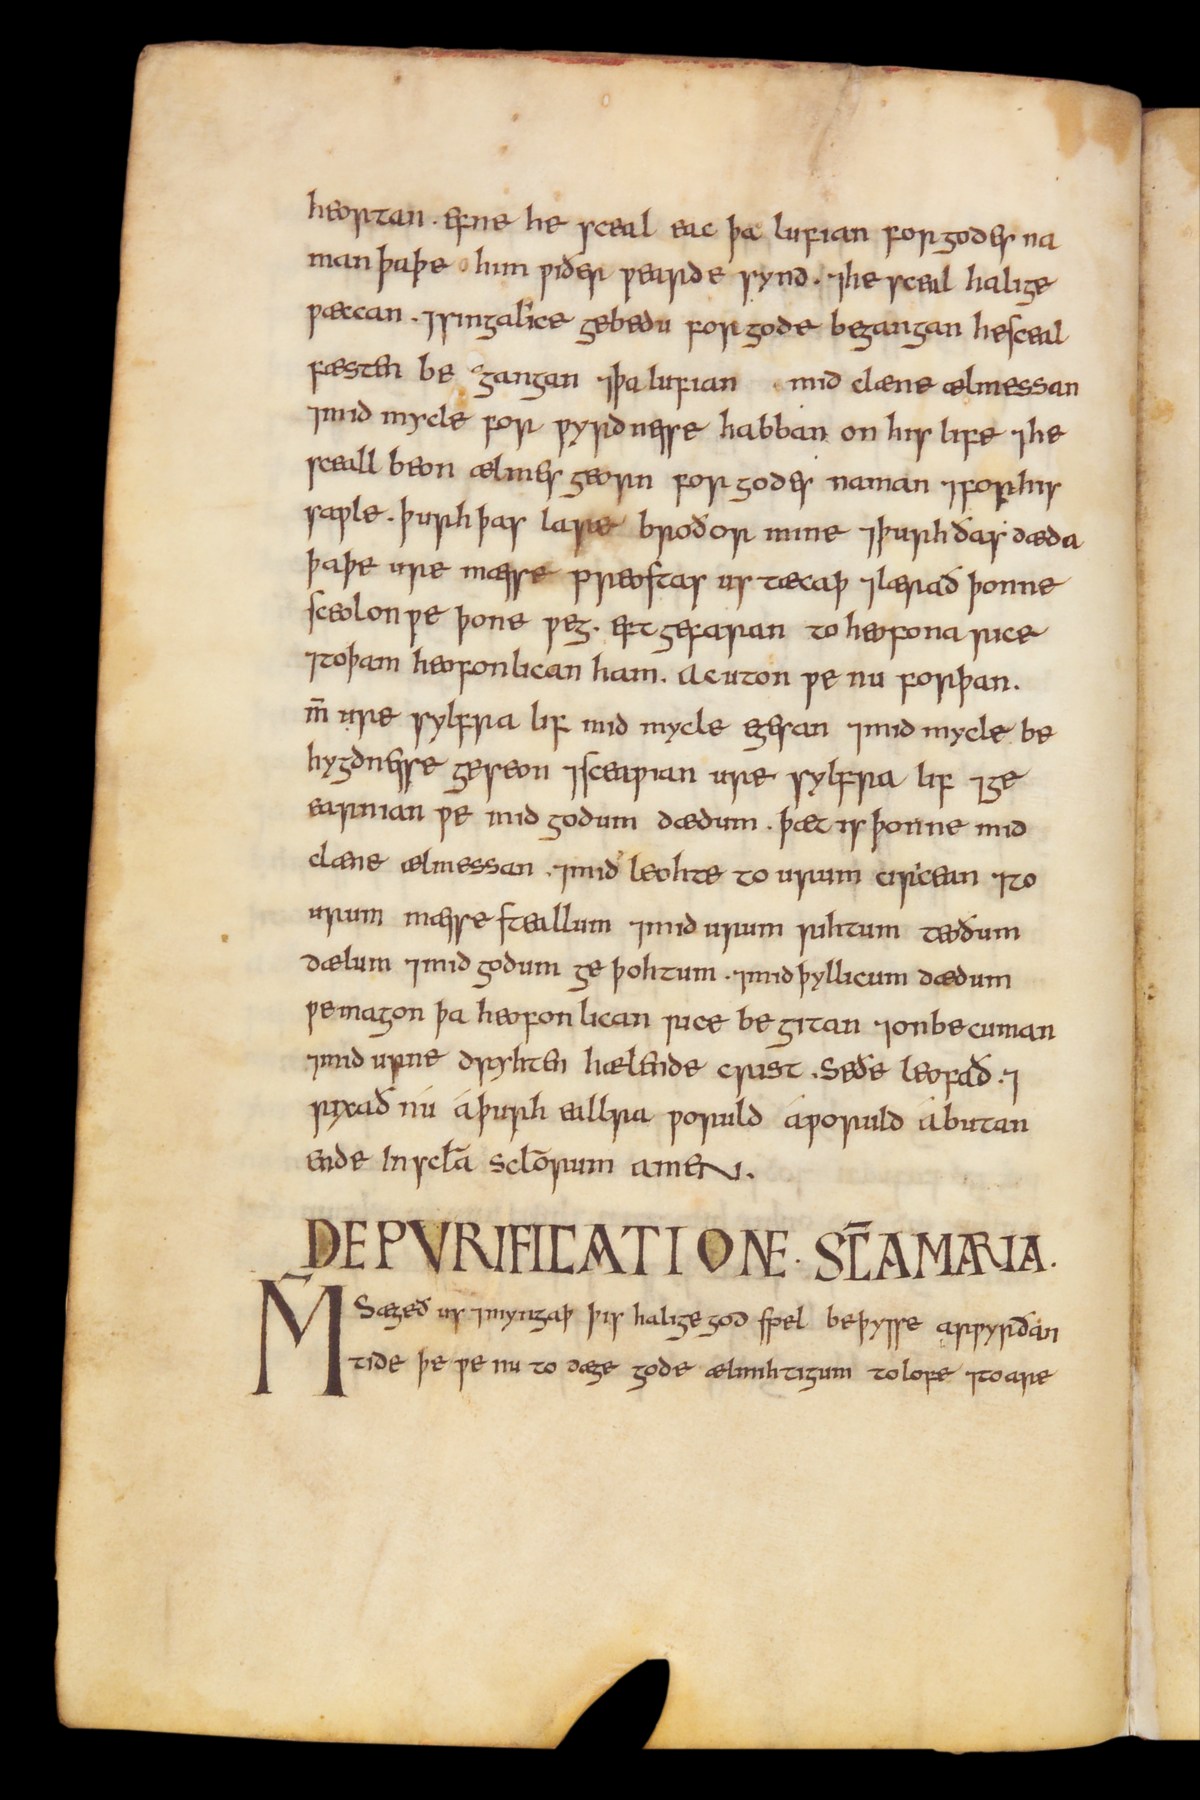 heortan · efne he sceal eac þa lufian for godes na
man þaþe him ƿiðer ƿearde synd · ⁊he sceal halige
ƿæccan · ⁊singalice gebedu for gode begangan he sceal
fæsten be gangan ⁊þa lufian mid clæne ælmessan
⁊mid mycle for ƿyrdnesse habban on his life ⁊he
sceall beon ælmes georn for godes naman ⁊for his
saƿle · þurh þas lare broðor mine ⁊þurh ðas dæda
þaþe ure mæsse preostas us tæcaþ ⁊lærað þonne
sceolon ƿe þone ƿeg · eft gefaran to heofona rice
⁊toþam heofonlican ham. Acuton ƿe nu forþan.
m̄ ure sylfra lif mid mycle egesan ⁊mid mycle be
hygdnesse geseon ⁊sceaƿian ure sylfra lif ⁊ge
earnian ƿe mid godum dædum · þæt is þonne mid
clæne ælmessan · ⁊mid leohte to urum circean ⁊to
urum mæsse steallum ⁊mid urum rihtum teoðum
dælum ⁊mid godum ge þohtum · ⁊mid þyllicum dædum
ƿe magon þa heofon lican rice be gitan ⁊on be cuman
⁊mid urne dryhten hælende crist · Seðe leofað · ⁊
rixað nú á þurh eallra ƿoruld áƿoruld á butan
ende In scl̄a scl̄orum amen.
DE PVRIFICATIONE · SC̄A MARIA.
M̄ Sægeð us ⁊myngaþ þis halige god spel be þysse arƿyrðan
tide þe ƿe nu to dæge gode ælmihtigum to lofe ⁊to are